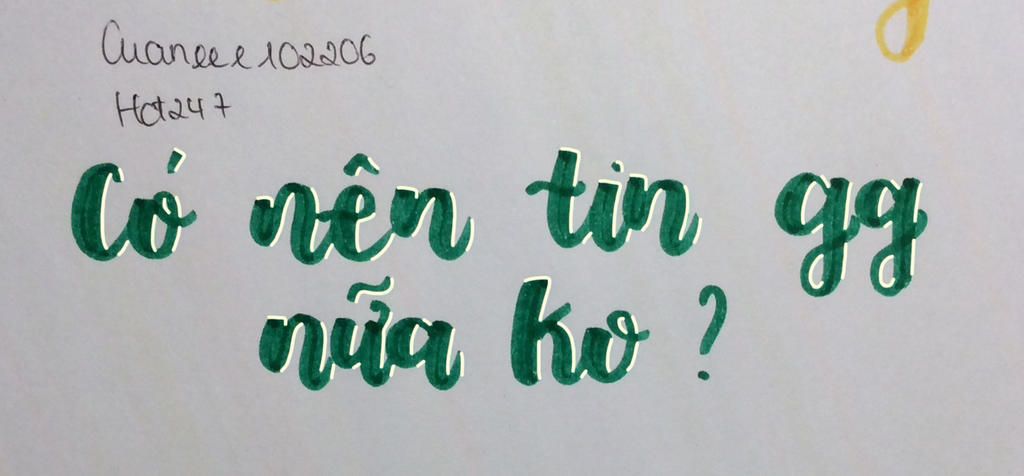 Cuaneee102206
Hot247
Có nên tin gg
nữa ko ?